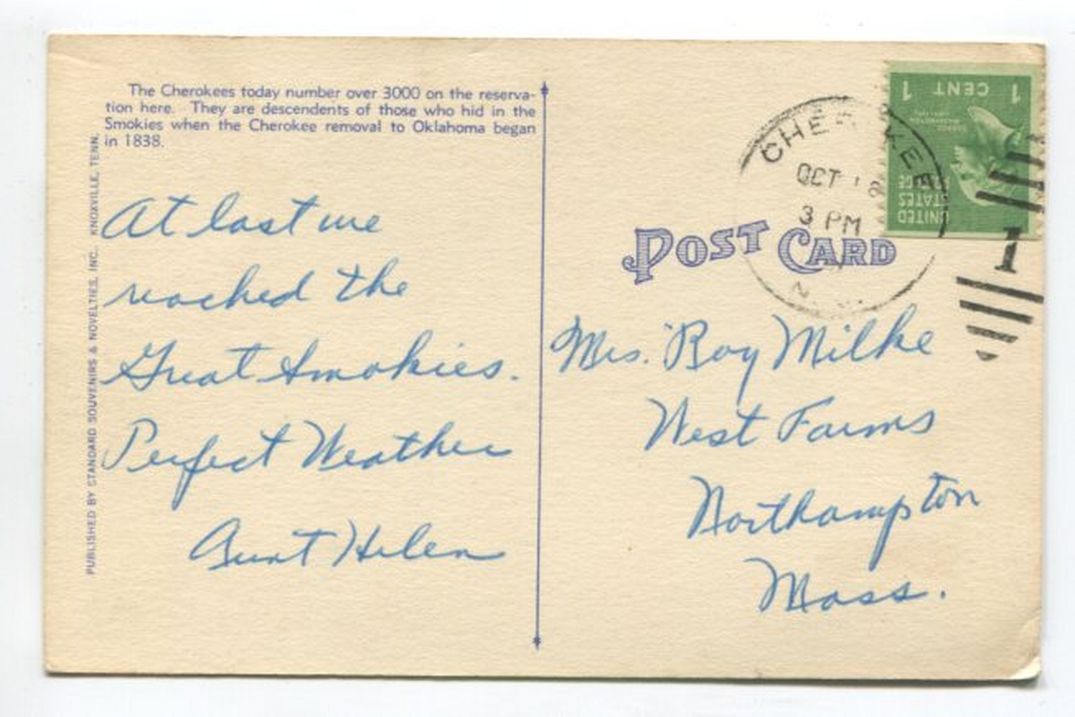 The Cherokees today number over 3000 on the reserva-
tion here. They are descendents of those who hid in the
Smokies when the Cherokee removal to Oklahoma began
in 1838.
PUBLISHED BY STANDARD SOUVENIRS & NOVELTIES, INC. KNOXVILLE, TENN.
At last we
reached the
Great Smokies.
Perfect Weather
Aunt Helen
POST CARD
CHEROKEE
OCT
3 PM
N.
1
1 CENT 1
UNITED
STATES
POSTAGE
Mrs. Roy Milke
West Farms
Northampton
Mass.